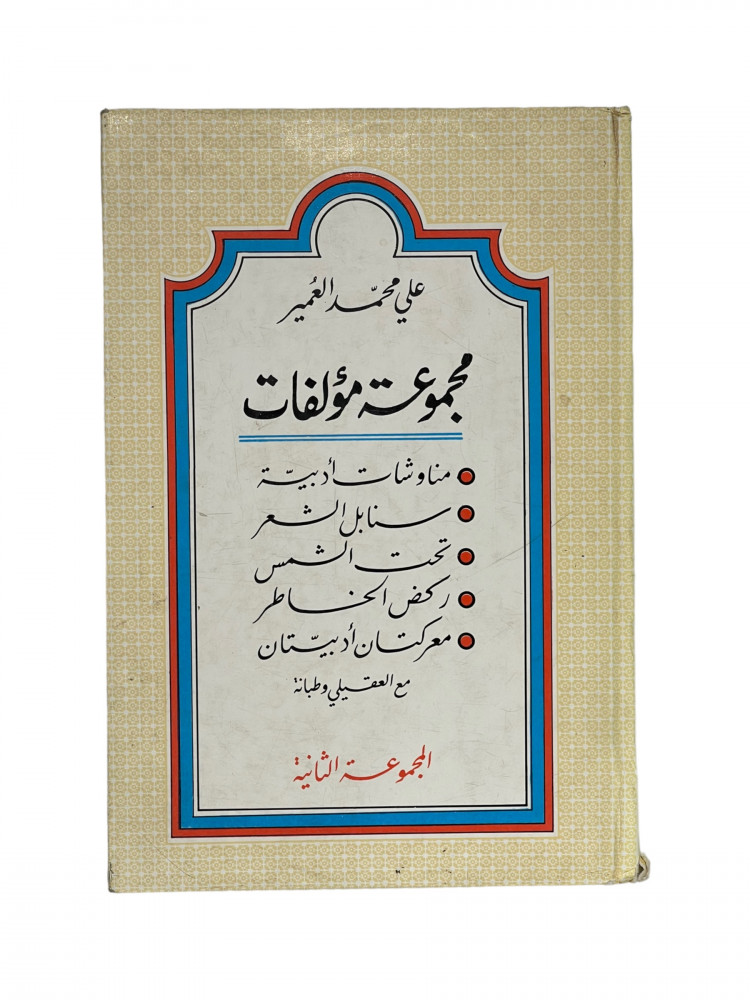 علي محمّد العُمير
مجموعة مؤلفات
مناوشات أدبيّة
سنابل الشعر
تحت الشمس
ركض الخاطر
معركتان أدبيّتان
مع العقيلي وطبانة
المجموعة الثانية